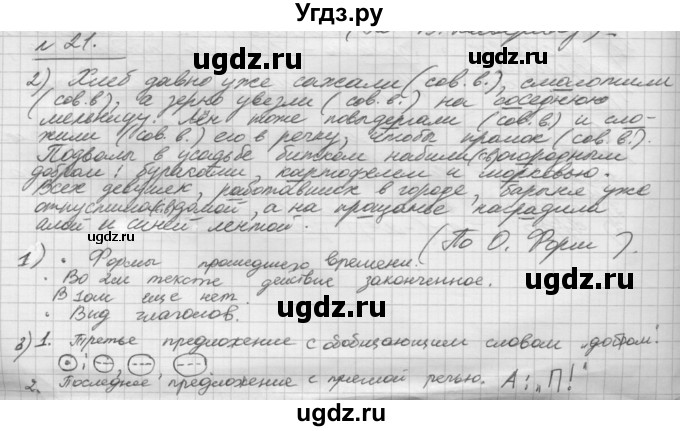 Угдз.ру
№ 21.
2) Хлеб давно уже сажали (сов.в.), смолотили
(сов.в), а зерно увезли (сов.в.) на соседнюю
мельницу. Лён тоже повыдергали (сов.в) и сло-
жили (сов.в.) его в речку, чтобы промок (сов.в.).
Подвалы в усадьбе битком набили огородным
добром: бураками, картофелем и морковью.
Всех девушек, работавших в городе, барыня уже
отпустила домой, а на прощанье наградила
алой и синей лентой.
(По О. Форш).
1) • Формы прошедшего времени.
• Во 2м тексте действие законченное.
В 1ом еще нет.
• Вид глаголов.
3) 1. Третье предложение с обобщающим словом „добром".
2. Последнее предложение с прямой речью. А: „П!"
ugdz.ru
ugdz.ru
ugdz.ru
ugdz.ru
ugdz.ru
ugdz.ru
ugdz.ru
ugdz.ru